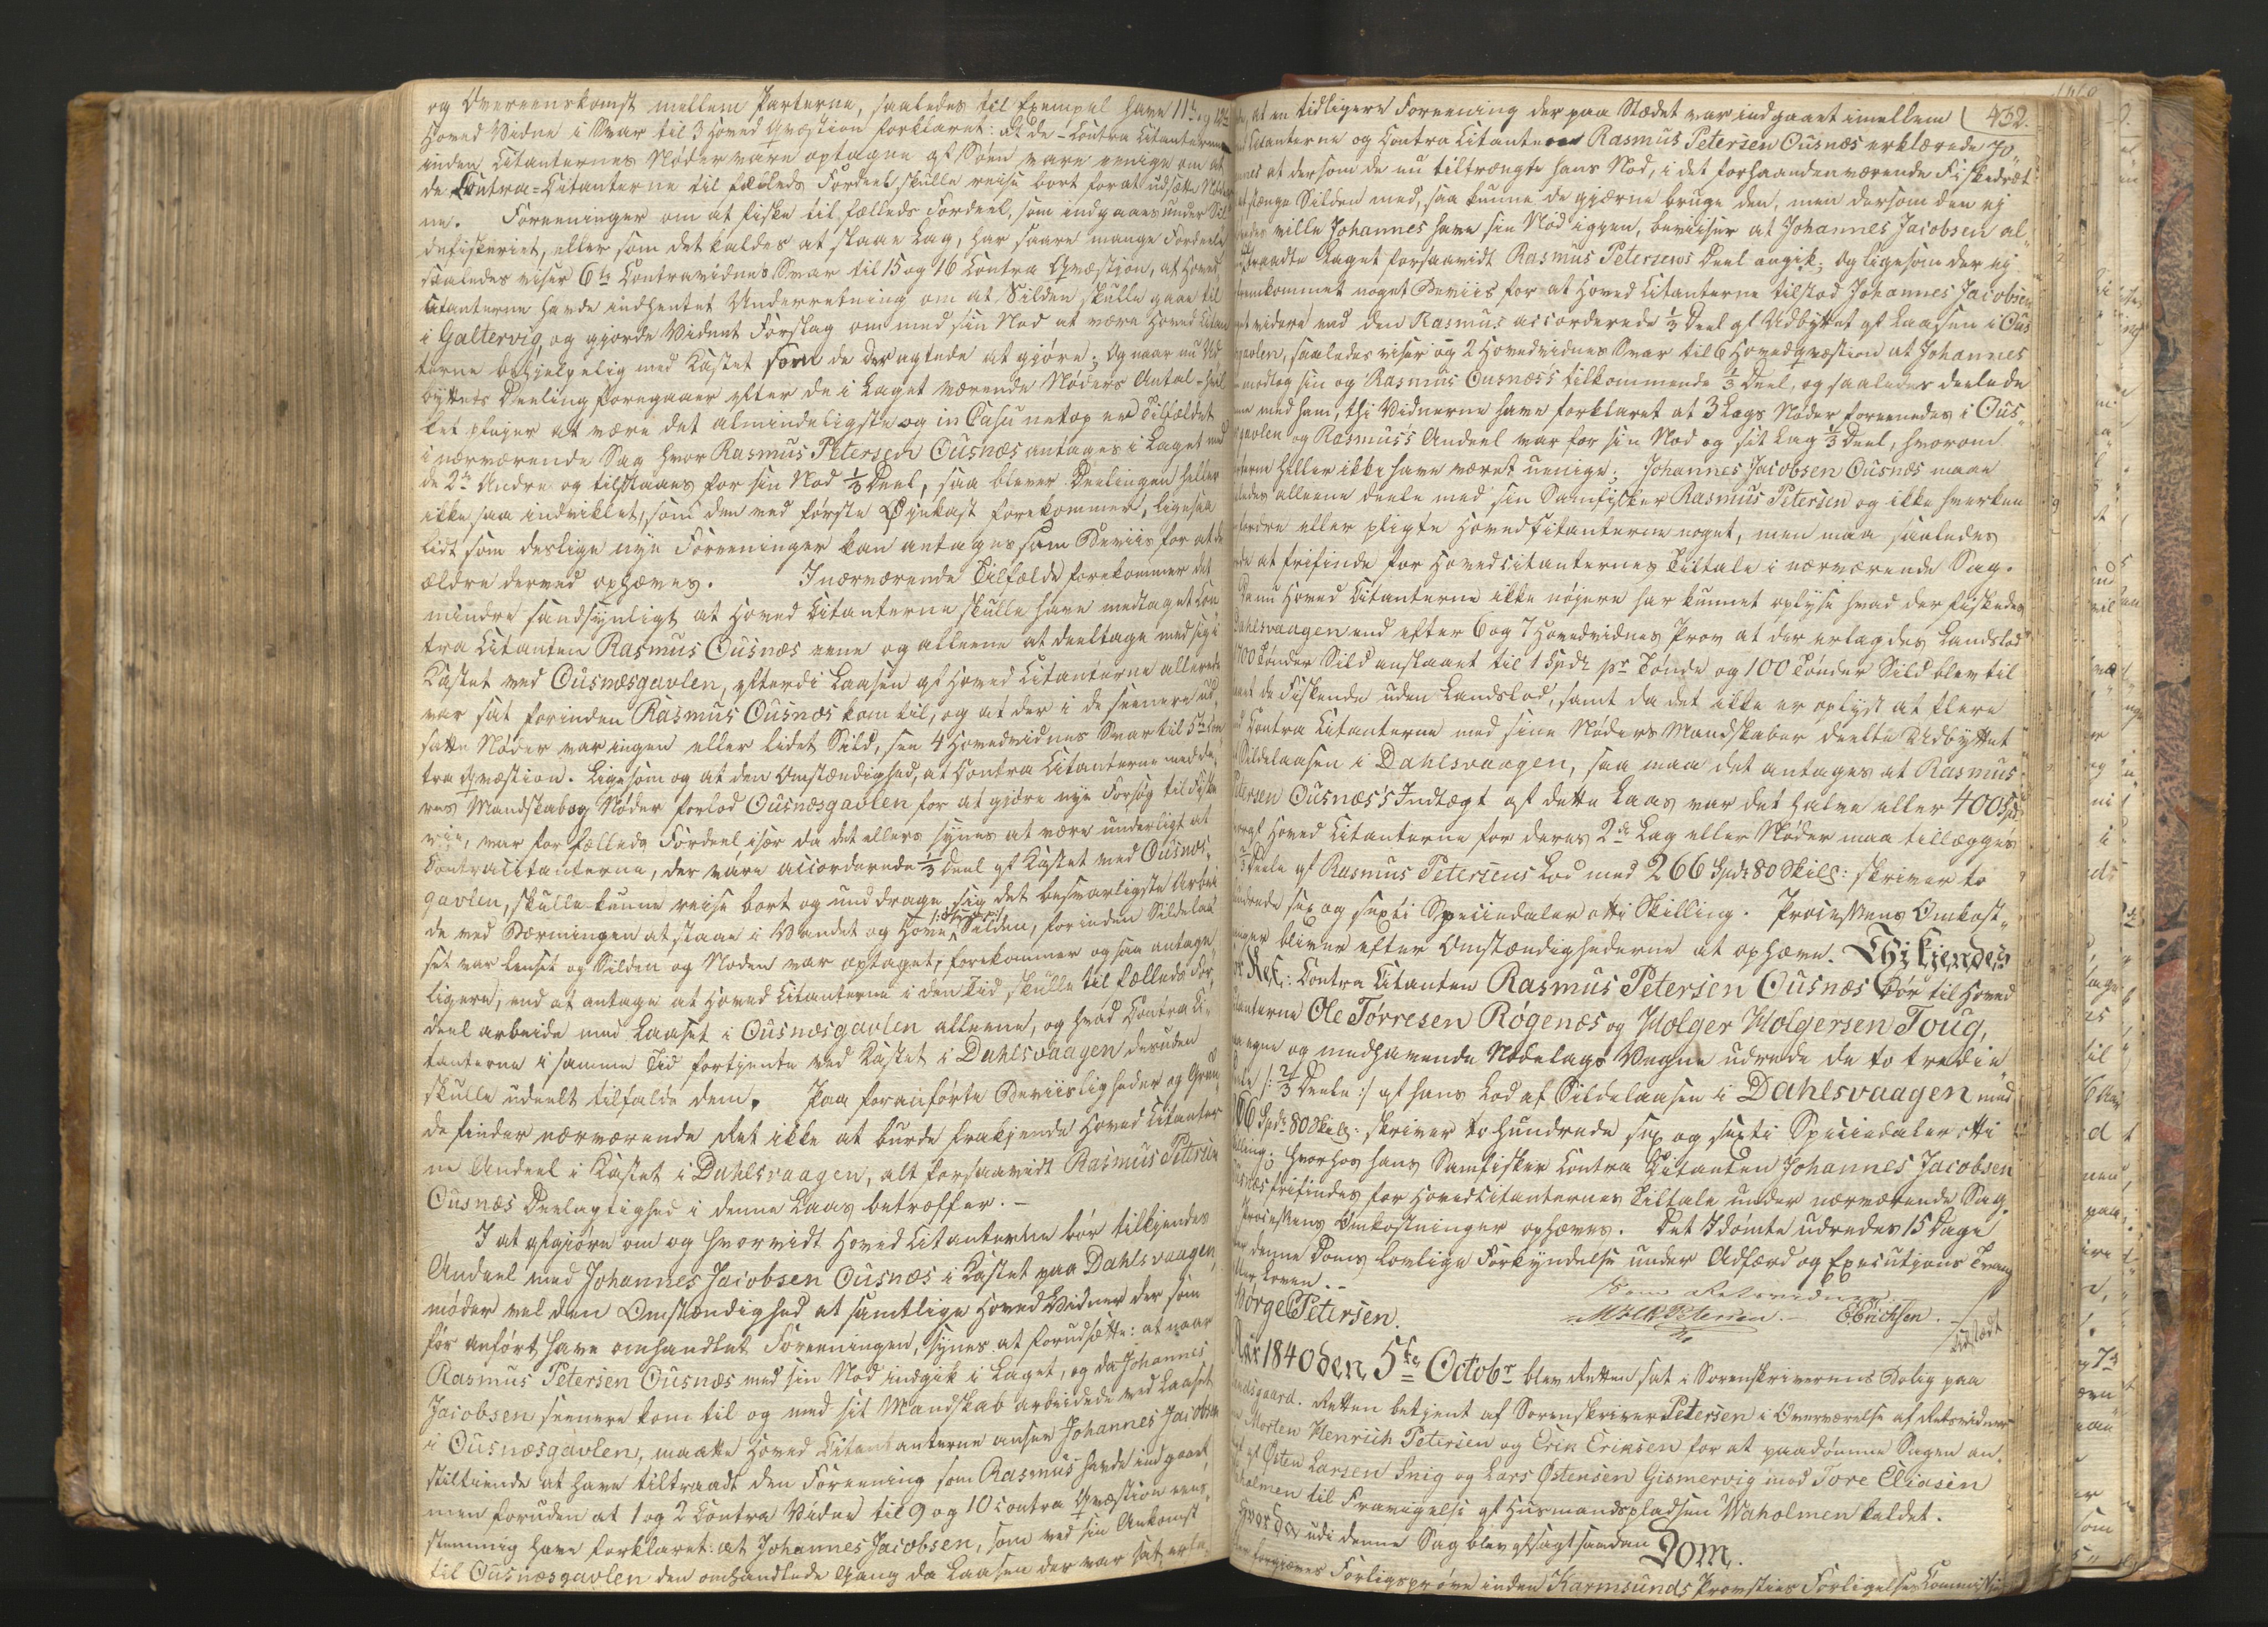 og Overeenskomst mellem Parterne, saaledes til Exempel have 11te og 12te
Hoved Vidne i Svar til 3 Hoved Qvæstion forklaret: At de - Contra Citanterne
inden Citanternes Nøder vare optagne af Søen vare eenige om at
de Contra-Citanterne til fælleds Fordeel skulle reise bort for at udsætte Nøder
ne. Foreeninger om at fiske til fælleds Fordeel, som indgaaes under Sil
defiskeriet, eller som det kaldes at staae Lag, har saare mange Fordeele
saaledes viser 6te Contravidnes Svar til 15 og 16 Contra Qvæstion, at Hoved
Citanterne havde indhentet Underretning om at Silden skulle gaae til
i Galtervig og gjorde Vidnet Forslag om med sin Nod at være Hoved Citan
terne behjelpelig med Kastet som de der agtede at gjøre; Og naar nu Ud
byttets Deeling foregaaer efter de i Laget værende Nøders Antal - hvil
ket pleier at være det almindeligste og in Casu netop er Tilfældet
i nærværende Sag hvor Rasmus Petersen Ousnæs antages i Laget med
de 2de Andre og tilstaaes for sin Nod 1/3 Deel, saa bliver Deelingen heller
ikke saa indviklet, som den ved første Øjekast forekommer, ligesaa
lidt som deslige nye Foreeninger kan antages som Beviis for at de
ældre derved ophæves. I nærværende Tilfælde forekommer det
mindre sandsynligt at Hoved Citanterne skulle have medtaget Con
tra Citanten Rasmus Ousnæs ene og alleene at deeltage med sig i
Kastet ved Ousnæsgavlen, efterdi Laasen af Hoved Citanterne allerede
var sat forinden Rasmus Ousnæs kom til, og at der i de seenere ud
satte Nøder var ingen eller lidet Sild, see 4 Hovedvidnes Svar til 5te Con
tra Qvæstion. Ligesom og at den Omstændighed, at Contra Citanterne med de
res Mandskab og Nøder forlod Ousnæsgavlen for at gjøre nye Forsøg til Fiske
rie, var for fælleds Fordeel især da det ellers synes at være underligt at
Contracitanterne, der vare accorderede 1/3 Deel af Kastet ved Ousnæs
gavlen, skulle kunne reise bort og unddrage sig det besværligste Arbei
de ved Bærningen at staae i Vandet og hove Silden, forinden Sildelaa
set var lenset og Silden og Noden var optaget, forekommer og saa antage
ligere, end at antage at Hoved Citanterne i den Tid skulle til fælleds For
deel arbeide med Laaset i Ousnæsgavlen alleene, og hvad Contra Ci
tanterne i samme Tid fortjente ved Kastet i Dahlsvaagen desuden
skulle udeelt tilfalde dem. Paa foranførte Beviisligheder og Grun
de finder nærværende Ret ikke at burde frakjende Hoved Citanter
ne Andeel i Kastet i Dahlsvaagen, alt forsaavidt Rasmus Petersen
Ousnæs Deelagtighed i denne Laas betræffer. -
I at afgjøre om og hvorvidt Hoved Citanterne bør tilkjendes
Andeel med Johannes Jacobsen Ousnæs i Kastet paa Dahlsvaagen,
møder vel den Omstændighed at samtlige Hoved Vidner der som
før anført have omhandlet Foreeningen, synes at forudsætte: at naar
Rasmus Petersen Ousnæs med sin Nod indgik i Laget, og da Johannes
Jacobsen seenere kom til og med sit Mandskab arbeidede ved Laaset
i Ousnæsgavlen, maatte Hoved Citanterne ansee Johannes Jacobsen
stiltiende at have tiltraadt den Foreening som Rasmus havde indgaaet
men foruden at 1 og 2 Contra Vidne til 9 og 10 contra Qvæstion eens
stemmig have forklaret at Johannes Jacobsen, som ved sin Ankomst
til Ousnæsgavlen den omhandlede Gang da Laasen der var sat, erfa
at en tidligere Foreening der paa Stedet var indgaaet imellem
432.
Citanterne og Contra Citanten Rasmus Petersen Ousnæs erklærede Jo
nes at dersom de nu tiltrængte hans Nod, i det forhaandenværende Fiskedræt
stænge Silden med, saa kunne de gjerne bruge den, men dersom den ej
ville Johannes have sin Nod igjen, beviiser at Johannes Jacobsen al
traadte Laget forsaavidt Rasmus Petersens Deel angik; og ligesom der ej
fremkommet noget Beviis for at Hoved Citanterne tilstod Johannes Jacobsen
videre end den Rasmus accorderede 1/3 Deel af Udbyttet af Laasen i Ous
gavlen, saaledes viser og 2 Hovedvidnes Svar til 6 Hovedqvæstion at Johannes
modtog sin og Rasmus Ousnæs's tilkommende 1/3 Deel, og saaledes deelede
med ham, thi Vidnerne have forklaret at 3 Lags Nøder foreenedes i Ous
gavlen og Rasmus's Andeel var for sin Nod og sit Lag 1/3 Deel, hvorom
heller ikke have været uenige; Johannes Jacobsen Ousnæs maae
ledes alleene deele med sin Samfisker Rasmus Petersen og ikke hverken
fordre eller pligte Hoved Citanterne noget, men maa saaledes
at frifinde for Hovedcitanternes Tiltale i nærværende Sag.
Da nu Hoved Citanterne ikke nøjere har kunnet oplyse hvad der fiskedes
Dahlsvaagen end efter 6 og 7 Hovedvidnes Prov at der erlagdes Landslod
700 Tønder Sild anslaaet til 1 Spdr pr Tønde og 100 Tønder Sild blev til
de Fiskende uden Landslod, samt da det ikke er oplyst at flere
Contra Citanterne med sine Nøders Mandskaber deelte Udbyttet
Sildelaasen i Dahlsvaagen, saa maa det antages at Rasmus
Petersen Ousnæs's Indtægt af dette Laas var det halve eller 400 Spd
Hoved Citanterne for deres 2de Lag eller Nøder maa tillægges
2/3 Deele af Rasmus Petersens Lod med 266 Spdr 80 Skill: skriver to
hundrede sex og sexti Speciedaler otti Skilling. Processens Omkost
ninger bliver efter Omstændighederne at ophæve. Thi kjendes
for Ret: Contra Citanten Rasmus Petersen Ousnæs bør til Hoved
Citanterne Ole Tørresen Røgenæs og Holger Holgersen Toug,
egne og medhavende Nødelags Vegne udrede de to tredie
Deele /: 2/3 Deele :/ af hans Lod af Sildelaasen i Dahlsvaagen med
266 Spdr 80 Skill: skriver to hundrede sex og sexti Speciedaler otti
Skilling; hvorhos hans Samfisker Contra Citanten Johannes Jacobsen
Ousnæs frifindes for Hovedcitanternes Tiltale under nærværende Sag.
Processens Omkostninger ophæves. Det Idømte udredes 15 Dage
denne Doms lovlige Forkyndelse under Adfærd og Executions Tvang
efter Loven. -
Som Retsvidner
Børge Petersen.
MHR Petersen. - E Erichsen. -
Aar 1840 den 5te Octobr blev Retten sat i Sorenskriverens Bolig paa
gaard. Retten betjent af Sorenskriver Petersen i Overværelse af Retsvidner
Morten Henrich Petersen og Erik Eriksen for at paadømme Sagen an
af Østen Larsen Snig og Lars Østensen Gismervig mod Tore Eliasen
holmen til Fravigelse af Husmandspladsen Waholmen kaldet.
Hvorda udi denne Sag blev afsagt saadan Dom.
forgjæves Forligsprøve inden Karmsunds Provsties Forligelses Commission